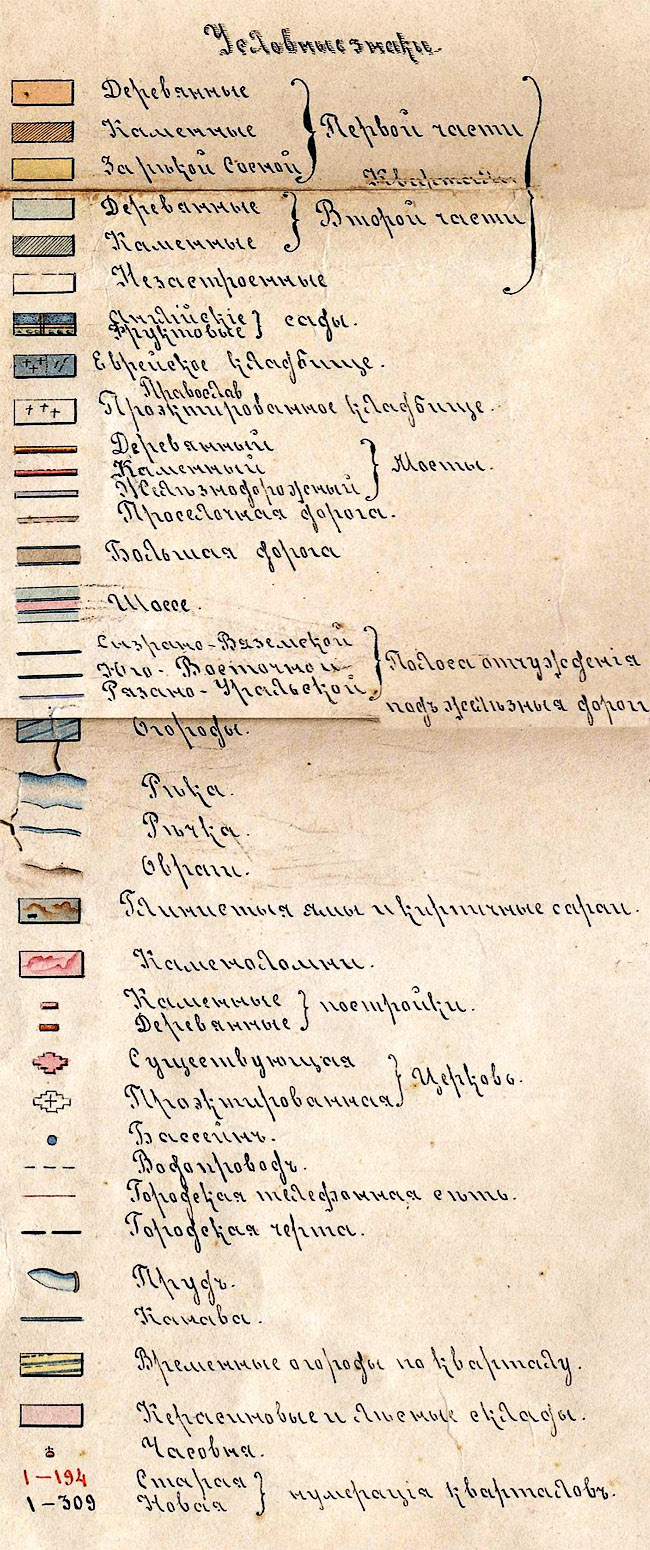 Условные знаки.
Деревянные
Каменные
За рѣкой Сосной
Первой части
Кварталы
Деревянные
Каменные
Второй части
Незастроенные
Англійскіе
Фруктовые
сады.
Еврейское кладбище.
Православ
Проэктированное кладбище.
Деревянный
Каменный
Желѣзнодорожный
Мосты.
Проселочная дорога.
Большая дорога
Шоссе.
Сызрано-Вяземской
Юго-Восточной
Рязано-Уральской
Полоса отчужденія
подъ желѣзныя дорог
Огороды.
Рѣка.
Рѣчка.
Овраги.
Глинистыя ямы и кирпичные сараи.
Каменоломни.
Каменные
Деревянные
постройки.
Существующая
Проэктированная
Церковь.
Бассейнъ.
Водопроводъ.
Городская телефонная сѣть.
Городская черта.
Прудъ.
Канава.
Временные огороды по кварталу.
Керасиновые и лѣсные склады.
Часовня.
1-194 Старая
1-309 Новая
нумерація кварталовъ.